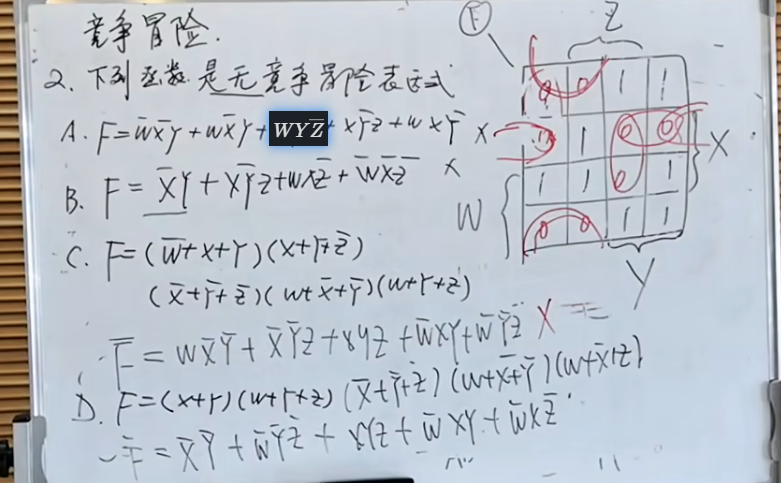 竞争冒险.
2. 下列函数是无竞争冒险表达式
A. F=W̄X̄Y+WX̄Y+WYZ̄+XȲZ+WXȲ X
B. F=X̄Y+XȲZ+WXZ̄+W̄XZ̄ X
C. F=(W̄+X+Y)(X+Y+Z̄)
(X̄+Ȳ+Z̄)(W+X̄+Ȳ)(W+Y+Z)
F̄=WX̄Ȳ+X̄ȲZ+XYZ+W̄XY+W̄ȲZ̄ X
D. F=(X+Y)(W+Y+Z)(X̄+Ȳ+Z̄)(W+X̄+Ȳ)(W+X̄+Z)
F̄=X̄Ȳ+W̄ȲZ̄+XYZ+W̄XY+W̄XZ̄
F
Z
0 0 1 1
1 0 0
X
1 1 0 1
W
0 0 1 1
Y